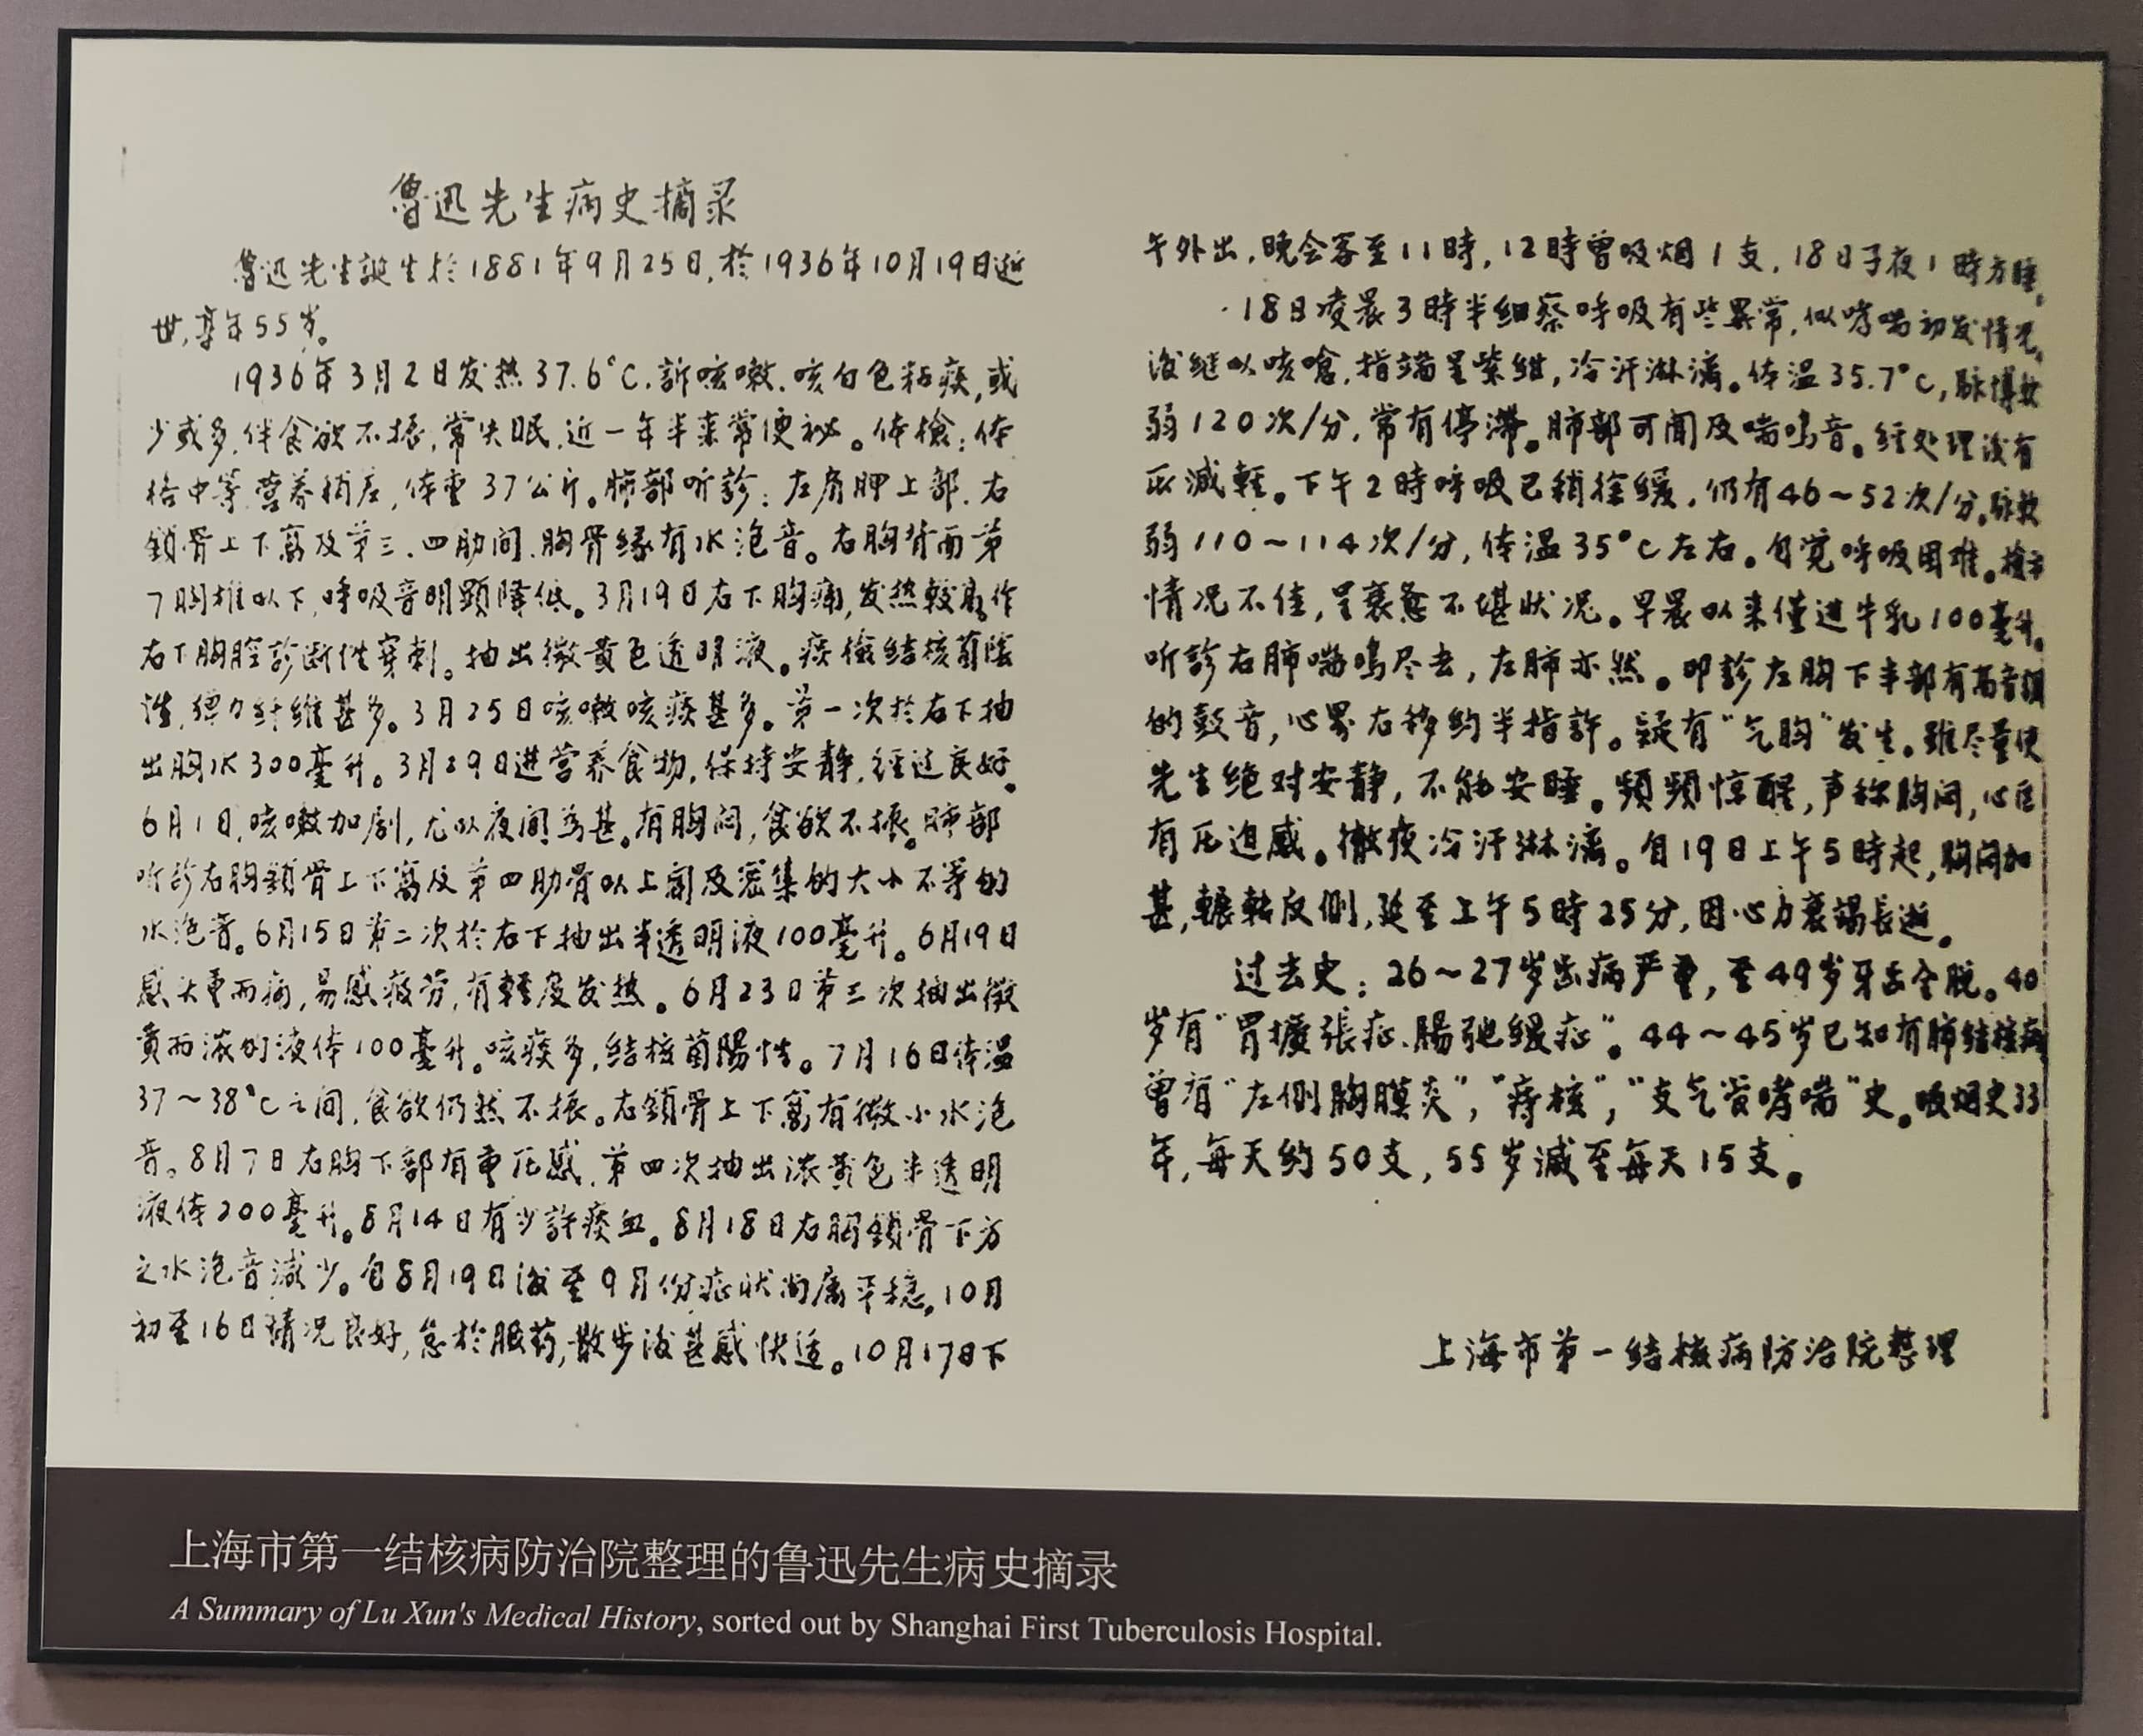 魯迅先生病史摘录
魯迅先生誕生於1881年9月25日,於1936年10月19日逝
世,享年55岁。
1936年3月2日发热37.6°C.訴咳嗽.咳白色粘痰,或
少或多.伴食欲不振,常失眠.近一年半来常便祕。体檢:体
格中等.营养稍差,体重37公斤。肺部听診:左肩胛上部.右
鎖骨上下窩及第三.四肋间.胸骨缘有水泡音。右胸背面第
7胸椎以下,呼吸音明顕降低。3月19日右下胸痛,发热較高.作
右下胸腔診断性穿刺。抽出微黄色透明液。痰檢結核菌陰
性,弹力纤维甚多。3月25日咳嗽咳痰甚多。第一次於右下抽
出胸水300毫升。3月29日进营养食物,保持安静,经过良好.
6月1日,咳嗽加剧,尤以夜间為甚。有胸闷,食欲不振。肺部
听診右胸鎖骨上下窩及第四肋骨以上闻及密集的大小不等的
水泡音。6月15日第二次於右下抽出半透明液100毫升。6月19日
感头重而痛,易感疲劳,有輕度发热。6月23日第三次抽出微
黄而浓的液体100毫升。咳痰多,结核菌陽性。7月16日体温
37~38°C之间,食欲仍然不振。右鎖骨上下窩有微小水泡
音。8月7日右胸下部有重压感.第四次抽出浓黄色半透明
液体200毫升。8月14日有少許痰血。8月18日右胸鎖骨下方
之水泡音減少。自8月19日後至9月份症状尚属平穏,10月
初至16日情况良好,怠於服药,散步後甚感快适。10月17日下
午外出,晚会客至11時,12時曾吸烟1支,18日子夜1時方睡.
18日凌晨3時半細察呼吸有些異常,似哮喘初发情况,
後继以咳嗆,指端呈紫紺,冷汗淋漓。体温35.7°C,脉搏軟
弱120次/分,常有停滞。肺部可闻及喘鸣音。经处理後有
所減輕。下午2時呼吸已稍徐缓,仍有46~52次/分.脉軟
弱110~114次/分,体温35°C左右。自觉呼吸困难。
情况不佳,呈衰憊不堪状况。早晨以来僅进牛乳100毫升。
听診右肺喘鸣尽去,左肺亦然。叩診左胸下半部有高音調
的鼓音,心界右移约半指許。疑有“气胸”发生。雖尽量使
先生绝对安静,不能安睡。頻頻惊醒,声称胸闷,心区
有压迫感。徹夜冷汗淋漓。自19日上午5時起,胸闷加
甚,輾転反側,延至上午5時25分,因心力衰竭長逝。
过去史:26~27岁齿病严重,至49岁牙齿全脱。40
岁有“胃擴張症.腸弛缓症”。44~45岁已知有肺结核病
曾有“左側胸膜炎”,“痔核”,“支气管哮喘”史。吸烟史33
年,每天约50支,55岁減至每天15支。
上海市第一结核病防治院整理
上海市第一结核病防治院整理的鲁迅先生病史摘录
A Summary of Lu Xun's Medical History, sorted out by Shanghai First Tuberculosis Hospital.